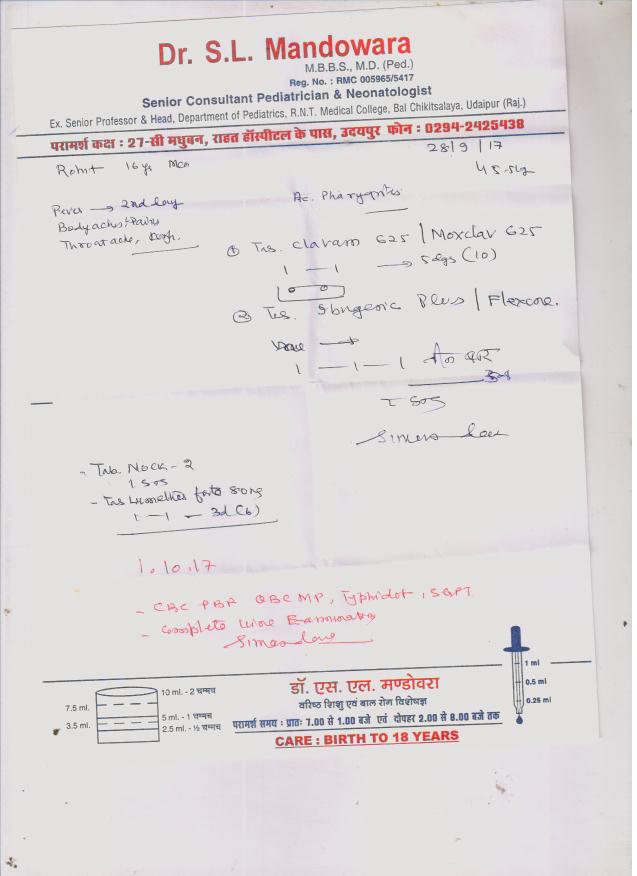 Dr. S.L. Mandowara
M.B.B.S., M.D. (Ped.)
Reg. No. : RMC 005965/5417
Senior Consultant Pediatrician & Neonatologist
Ex. Senior Professor & Head, Department of Pediatrics, R.N.T. Medical College, Bal Chikitsalaya, Udaipur (Raj.)
परामर्श कक्ष : 27-सी मधुबन, राहत हॉस्पीटल के पास, उदयपुर फोन : 0294-2425438
28/9/17
Rohit 16 yr
Fever → 2nd day
Bodyaches/Pains
Throatache,
Ac. Pharyngitis
① Tab. Clavam 625 / Moxclav 625
1 — 1 → 5 days (10)
② Tab. Ibugesic Plus / Flexon
1 — 1 — 1
SOS
- Tab. Nock - 2
1 SOS
1 — 1 — 3d (6)
1.10.17
- CBC PBF QBC MP, Typhidot, SGPT
- Complete Urine Examination
10 ml. - 2 चम्मच
7.5 ml.
5 ml. - 1 चम्मच
3.5 ml.
2.5 ml. - ½ चम्मच
डॉ. एस. एल. मण्डोवरा
वरिष्ठ शिशु एवं बाल रोग विशेषज्ञ
परामर्श समय : प्रातः 7.00 से 1.00 बजे एवं दोपहर 2.00 से 8.00 बजे तक
CARE : BIRTH TO 18 YEARS
1 ml
0.5 ml
0.25 ml